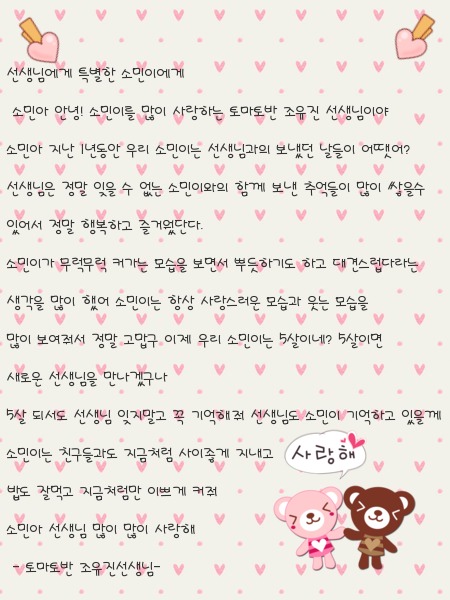 선생님에게 특별한 소민이에게
소민아 안녕! 소민이를 많이 사랑하는 토마토반 조유진 선생님이야
소민아 지난 1년동안 우리 소민이는 선생님과의 보냈던 날들이 어땠어?
선생님은 정말 잊을 수 없는 소민이와의 함께 보낸 추억들이 많이 쌓을수
있어서 정말 행복하고 즐거웠단다.
소민이가 무럭무럭 커가는 모습을 보면서 뿌듯하기도 하고 대견스럽다라는
생각을 많이 했어 소민이는 항상 사랑스러운 모습과 웃는 모습을
많이 보여줘서 정말 고맙구 이제 우리 소민이는 5살이네? 5살이면
새로운 선생님을 만나겠구나
5살 되서도 선생님 잊지말고 꼭 기억해줘 선생님도 소민이 기억하고 있을게
소민이는 친구들과도 지금처럼 사이좋게 지내고
사랑해
밥도 잘먹고 지금처럼만 이쁘게 커줘
소민아 선생님 많이 많이 사랑해
- 토마토반 조유진선생님-